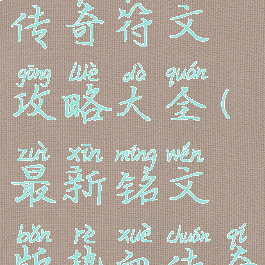 传奇符文
gōng lüè dà quán
攻略大全(
zuì xīn míng wén
最新铭文
bǎn rè xuè chuán qí
版热血传奇